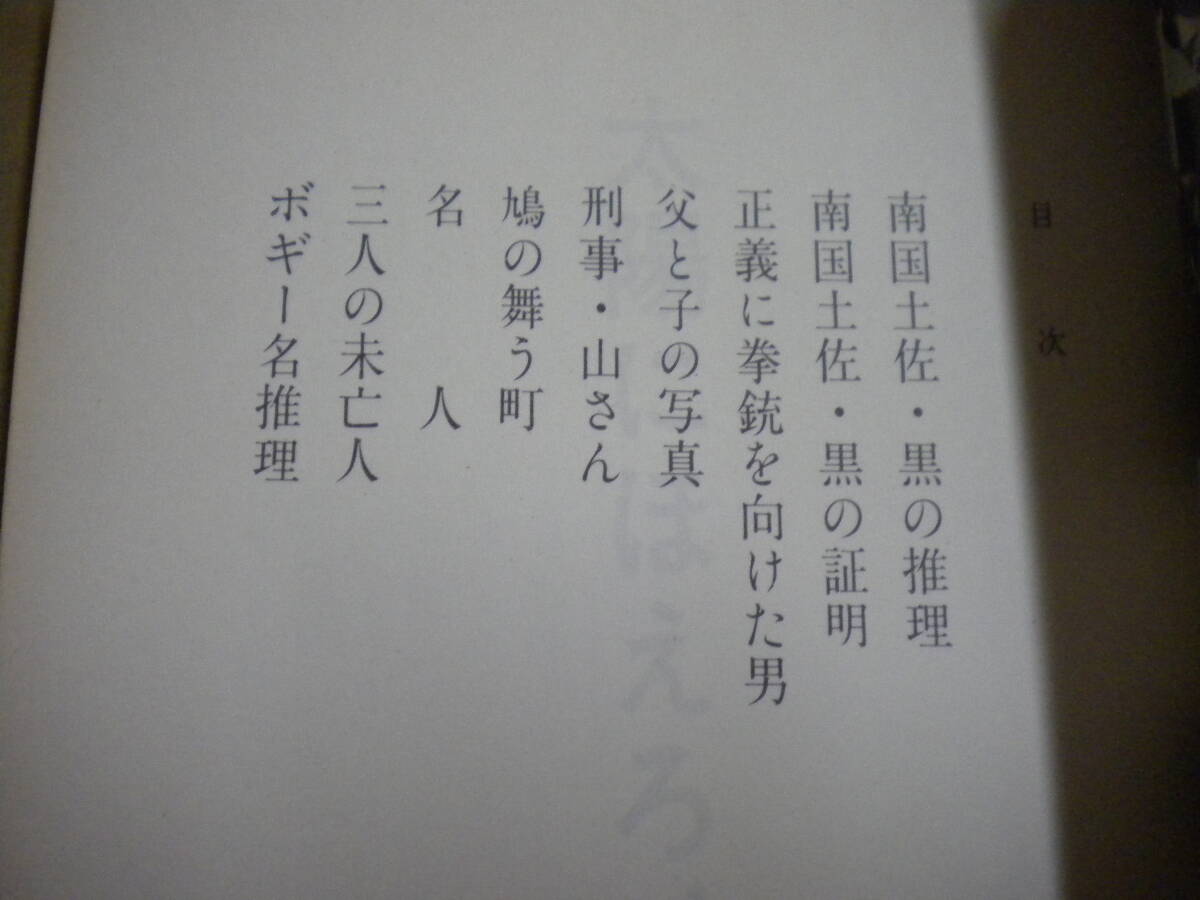 目次
南国土佐・黒の推理
南国土佐・黒の証明
正義に拳銃を向けた男
父と子の写真
刑事・山さん
鳩の舞う町
名人
三人の未亡人
ボギー名推理